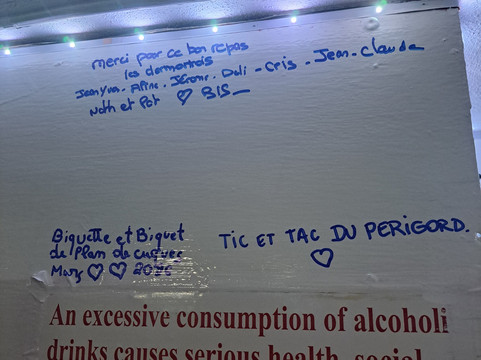 merci pour ce bon repas
les dermontois
Jean Yves. Aline. Jérome. Dali - Cris - Jean-Claude
Nath et Pat ♡ BIS
Biquette et Biquet
de Plan de cuques
Mars ♡ ♡
TIC ET TAC DU PERIGORD.
♡
An excessive consumption of alcoholi
drinks causes serious health, social